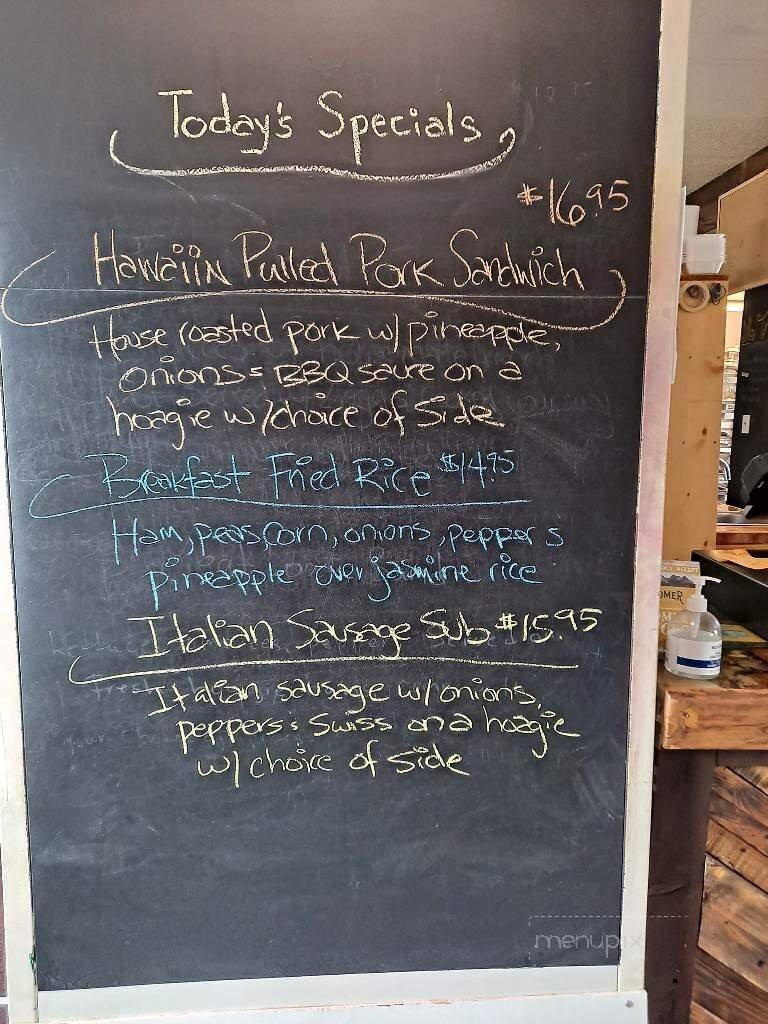 Today's Specials
$16.95
Hawaiin Pulled Pork Sandwich
House roasted pork w/ pineapple,
onions & BBQ sauce on a
hoagie w/choice of side
Breakfast Fried Rice $14.95
Ham, peas, corn, onions, peppers
pineapple over jasmine rice
Italian Sausage Sub $15.95
Italian sausage w/onions,
peppers & Swiss on a hoagie
w/ choice of side
menupix